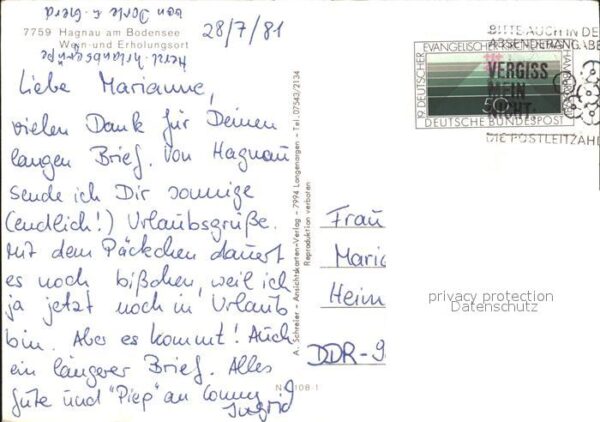 Herzl. Urlaubsgrüße
von Dorle & Gerd
7759 Hagnau am Bodensee
Wein- und Erholungsort
28/7/81
Liebe Marianne,
vielen Dank für Deinen
langen Brief. Von Hagnau
sende ich Dir sonnige
(endlich!) Urlaubsgrüße.
Mit dem Päckchen dauert
es noch bißchen, weil ich
ja jetzt noch in Urlaub
bin. Aber es kommt! Auch
ein längerer Brief. Alles
Gute und "Piep" an Conny
Ingrid
A. Schreier - Ansichtskarten-Verlag - 7994 Langenargen - Tel. 07543/2134
Reproduktion verboten
108
BITTE AUCH IN DE
ABSENDERANGABE
VERGISS
MEIN
NICHT:
DIE POSTLEITZAHL
19. DEUTSCHER EVANGELISCHER KIRCHENTAG HAMBURG
50
DEUTSCHE BUNDESPOST
Frau
Maria
Heim
DDR-9
privacy protection
Datenschutz